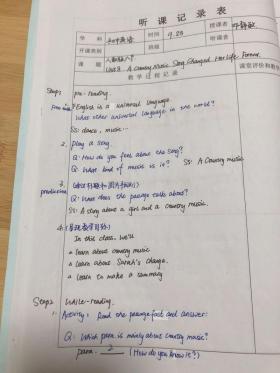 听 课 记 录 表
学 科 初中英语 时间 9.28 授课者
开课类别 班级 听课者
课 题 人教版八下
Unit 8 A Country Music Song Changed Her Life Forever.
教 学 过 程 记 录 课堂评价和教学
Step1 pre-reading.
1. English is a universal language.
What other universal language in the world?
SS: dance, music...
2. Play a song
Q: How do you feel about the song?
Q: What kind of music is it? SS: A Country music
3.
prediction Q: What does the passage talks about?
SS: A story about a girl and a country music.
4.
In this class, we'll
learn about country music
learn about Sarah's change.
learn to make a summary
Step2 While-reading.
1. Activity: Read the passage fast and answer:
Q: Which para. is mainly about country music?
para. 2 (How do you know it?)